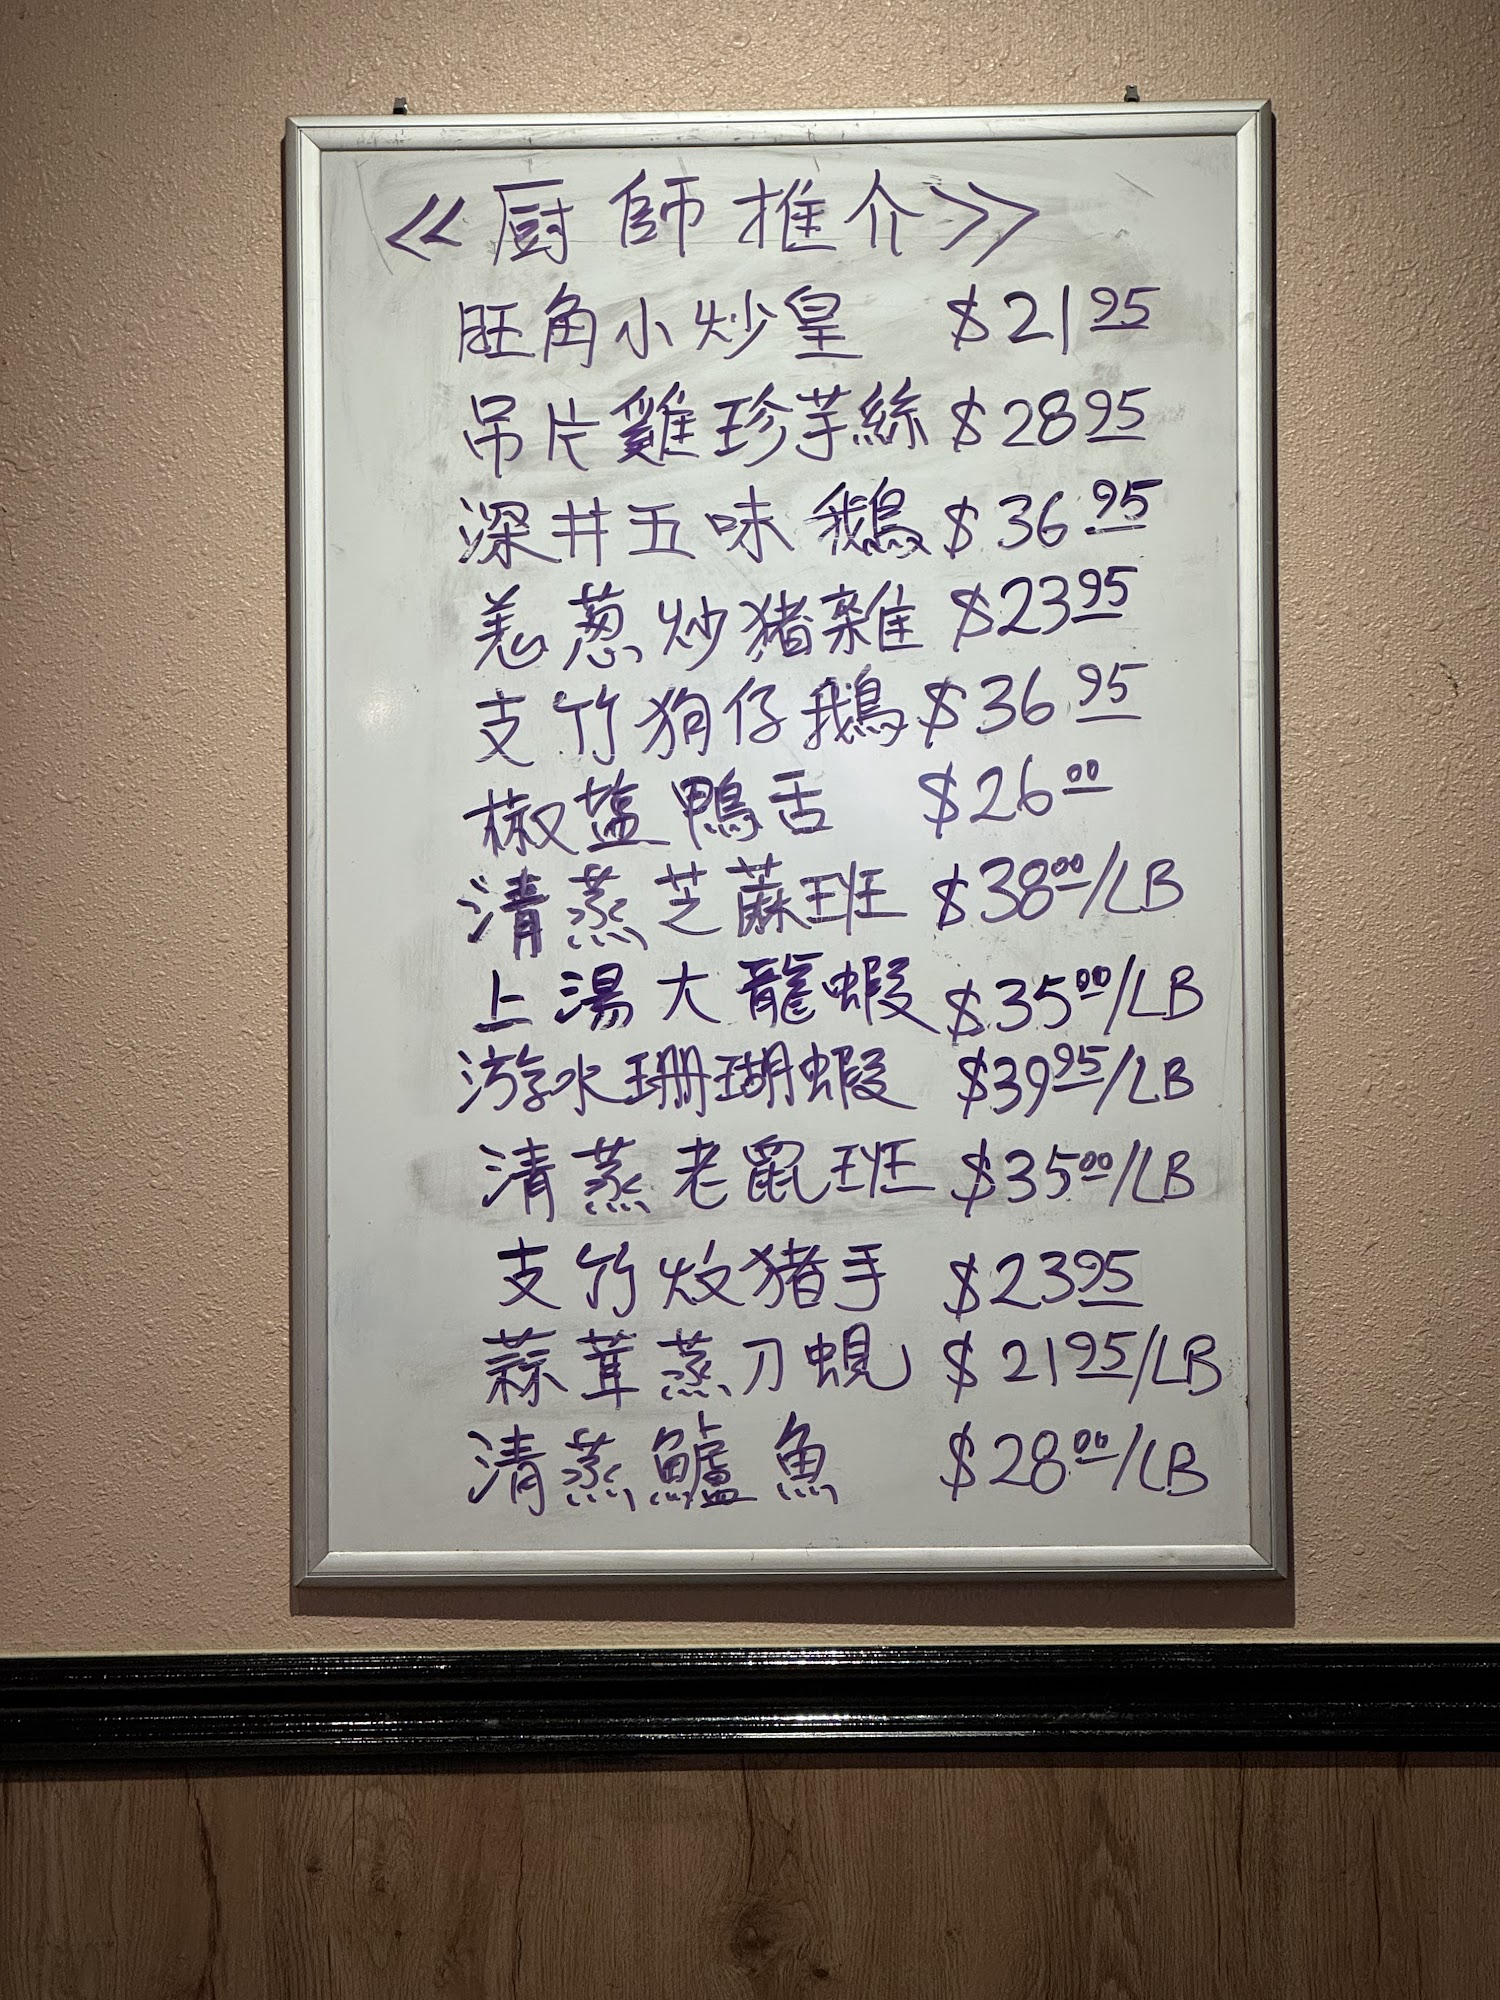 《厨師推介》
旺角小炒皇 $21.95
吊片雞珍芋絲 $28.95
深井五味鵝 $36.95
羗葱炒猪雜 $23.95
支竹狗仔鵝 $36.95
椒蓝鴨舌 $26.00
清蒸芝蔴班 $38.00/LB
上湯大龍蝦 $35.00/LB
游水珊瑚蝦 $39.95/LB
清蒸老鼠班 $35.00/LB
支竹炆猪手 $23.95
蒜茸蒸刀蜆 $21.95/LB
清蒸鱸魚 $28.00/LB